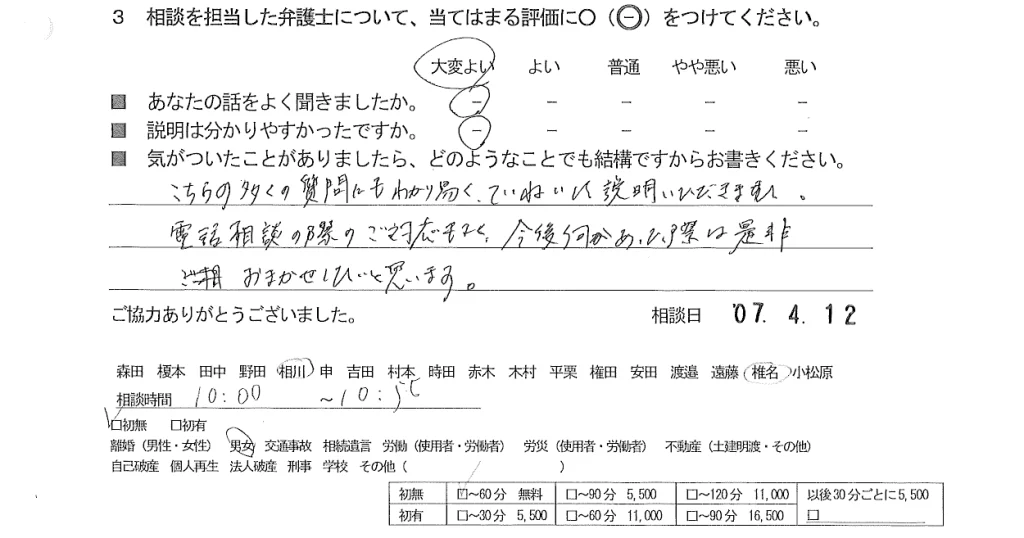 3 相談を担当した弁護士について、当てはまる評価に○(⊖)をつけてください。
大変よい よい 普通 やや悪い 悪い
■ あなたの話をよく聞きましたか。 － － － － －
■ 説明は分かりやすかったですか。 － － － － －
■ 気がついたことがありましたら、どのようなことでも結構ですからお書きください。
こちらの多くの質問にもわかり易く、ていねいに説明いただきました。
電話相談の際のご対応もよく、今後何かあった際は是非
おまかせしたいと思います。
ご協力ありがとうございました。 相談日 '07. 4. 12
森田 榎本 田中 野田 相川 申 吉田 村本 時田 赤木 木村 平栗 権田 安田 渡邉 遠藤 椎名 小松原
相談時間 10:00 ～10:50
☑初無 □初有
離婚（男性・女性） 男女 交通事故 相続遺言 労働（使用者・労働者） 労災（使用者・労働者） 不動産（土建明渡・その他）
自己破産 個人再生 法人破産 刑事 学校 その他（ ）
初無 ☑～60分 無料 □～90分 5,500 □～120分 11,000 以後30分ごとに5,500
初有 □～30分 5,500 □～60分 11,000 □～90分 16,500 □